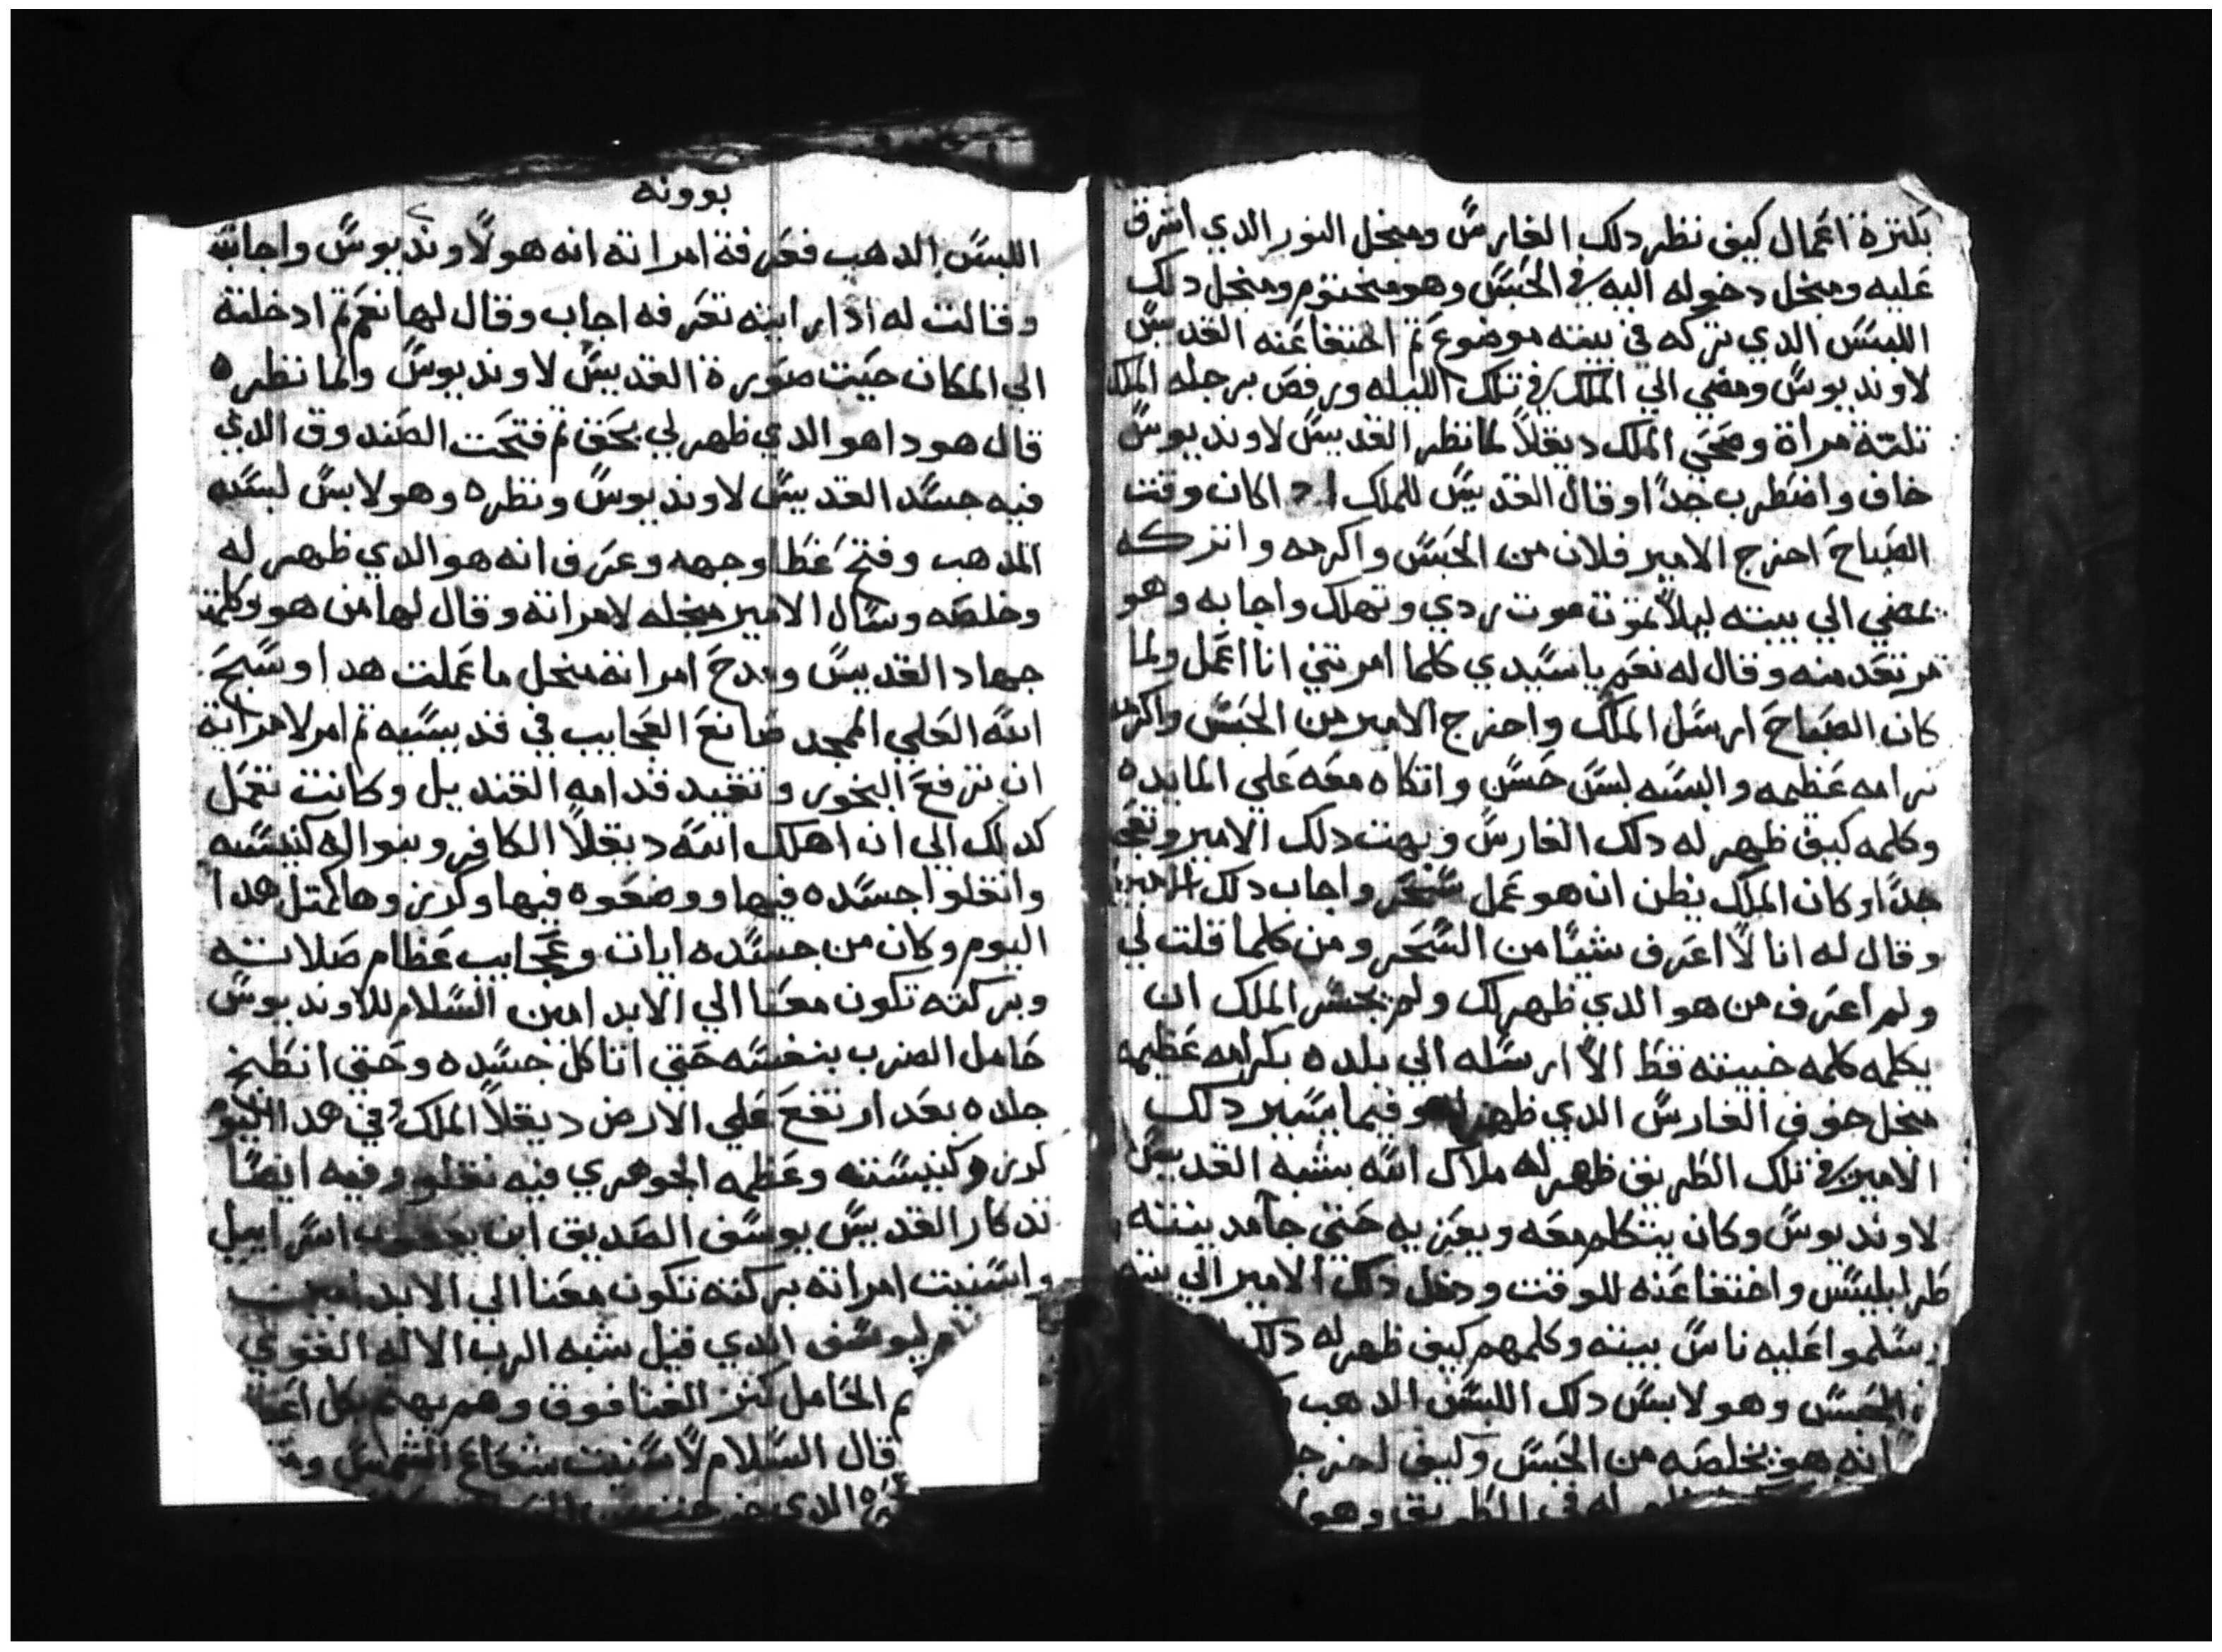 بكترة اعمال كيف نظر دلك الفارس ومنجل النور الدي اشرق
عليه ومنجل دخوله اليه في الحبس وهو مختوم ومنجل دلك
اللبس الدي تركه في بيته موضوع تم اختفا عنه القديس
لاونديوس ومضي الي الملك في تلك الليله ورفص برجله الملك
تلتة مراة وصحي الملك ديقلا لما نظر القديس لاونديوس
خاف واضطرب جدا وقال القديس للملك ادا كان وقت
الصباح اخرج الامير فلان من الحبس واكرمه واتركه
يمضي الي بيته ليلا تموت موت ردي وتهلك واجابه وهو
مرتعد منه وقال له نعم يا سيدي كلما امرتني انا اعمل ولما
كان الصباح ارسل الملك واخرج الامير من الحبس واكرمه
كرامه عظيمه والبسه لبس حسن واتكاه معه علي المايده
وكلمه كيف ظهر له دلك الفارس وبهت دلك الامير وتعجب
جدا وكان الملك يظن ان هو عمل سحر واجاب دلك الامير
وقال له انا لا اعرف شيا من السحر ومن كلما قلت لي
ولم اعرف من هو الدي ظهر لك ولم يجسر الملك ان
يكلمه كلمه خبيته قط الا ارسله الي بلده بكرامه عظيمه
منجل خوف الفارس الدي ظهر له وفيما يسير دلك
الامير في تلك الطريق ظهر له ملاك الله بشبه القديس
لاونديوس وكان يتكلم معه ويعزيه حتي جا مدينته
طرابليس واختفا عنه للوقت ودخل دلك الامير الي بيته
وسلموا عليه ناس بيته وكلمهم كيف ظهر له دلك
في الحبس وهو لابس دلك اللبس الدهب
انه هو يخلصه من الحبس وكيف اخرجه
له في الطريق وهو
بوونه
اللبس الدهب فعرفة امراته انه هو لاونديوس واجابته
وقالت له ادا رايته تعرفه اجاب وقال لها نعم تم ادخلته
الي المكان حيت صورة القديس لاونديوس ولما نظره
قال هودا هو الدي ظهر لي بحق تم فتحت الصندوق الدي
فيه جسد القديس لاونديوس ونظره وهو لابس لبسه
المدهب وفتح غطا وجهه وعرف انه هو الدي ظهر له
وخلصه وسال الامير منجله لامراته وقال لها من هو وكلمته
جهاد القديس ومدح امراته منجل ما عملت هدا وسبح
الله العلي الممجد صانع العجايب في قديسيه تم امر لامراته
ان ترفع البخور وتقيد قدامه القنديل وكانت تعمل
كدلك الي ان اهلك الله ديقلا الكافر وبنوا له كنيسه
وانقلوا جسده فيها ووضعوه فيها وكرزوها كمتل هدا
اليوم وكان من جسده ايات وعجايب عظام صلاته
وبركته تكون معنا الي الابد امين السلام للاونديوس
حامل الضرب بنفسه حتي اتاكل جسده وحتي انطبخ
جلده بعد ارتفع علي الارض ديقلا الملك في هدا اليوم
كرزو كنيسته وعظمه الجوهري فيه نقلو وفيه ايضا
تدكار القديس يوسف الصديق ابن يعقوب اسراييل
واسنيت امراته بركته تكون معنا الي الابد امين
ليوسف الدي قيل شبه الرب الاله القوي
الحامل كتر الغنا فوق وهم يهتم بكل
قال السلام لاسنيت شعاع الشمس
الدي